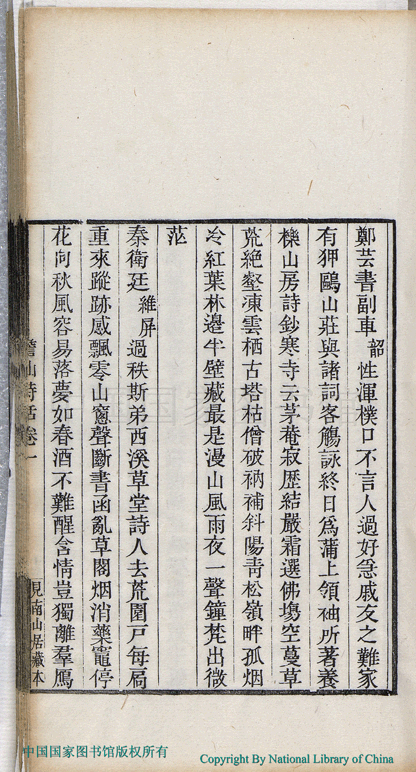 鄭芸書副車韶性渾樸口不言人過好急戚友之難家
有狎鷗山莊與諸詞客觴詠終日為蒲上領袖所著養
櫟山房詩鈔寒寺云茅菴寂歷結嚴霜選佛塲空蔓草
荒絕壑凍雲栖古塔枯僧破衲補斜陽靑松嶺畔孤烟
冷紅葉林邉半壁藏最是漫山風雨夜一聲鐘梵出微
茫
秦衛廷維屏過秩斯弟西溪草堂詩人去荒園戸每扃
重來蹤跡感飄零山窻聲斷書函亂草閣烟消藥竈停
花向秋風容易落夢如春酒不難醒含情豈獨離羣鴈
山詩話卷一
見南山居藏本
中国国家图书馆版权所有
Copyright By National Library of China